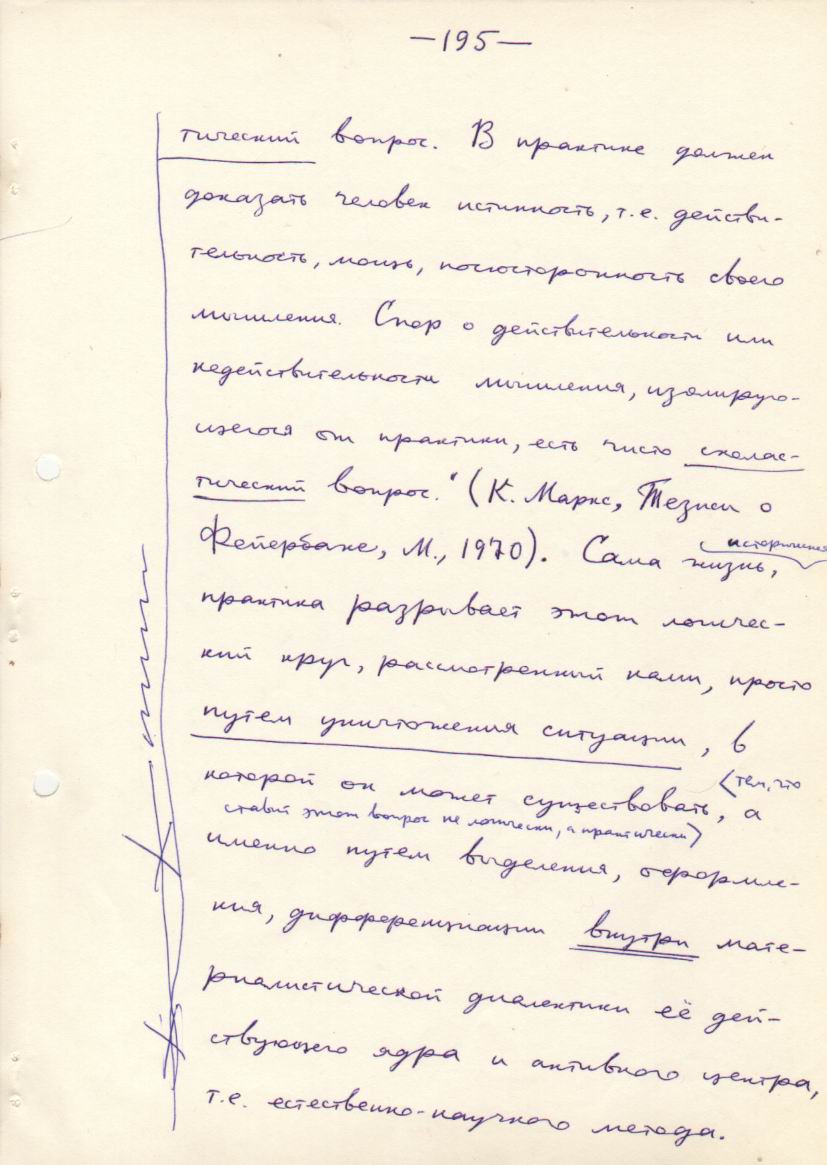 —195—
тический вопрос. В практике должен
доказать человек истинность, т.е. действи-
тельность, мощь, посюсторонность своего
мышления. Спор о действительности или
недействительности мышления, изолирую-
щегося от практики, есть чисто схолас-
тический вопрос." (К. Маркс, Тезисы о
Фейербахе, М., 1970). Сама жизнь,
историческая
практика разрывает этот логичес-
кий круг, рассмотренный нами, просто
путем уничтожения ситуации, в
которой он может существовать, а
<тем, что
ставит этот вопрос не логически, а практически>
именно путем выделения, оформле-
ния, дифференциации внутри мате-
риалистической диалектики её дей-
ствующего ядра и активного центра,
т.е. естественно-научного метода.